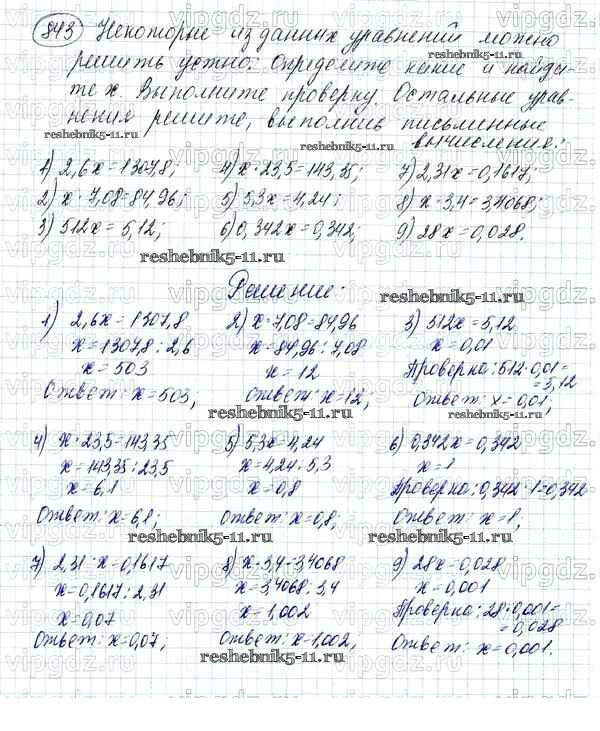 843 Некоторые из данных уравнений можно
решить устно: определите какие и найди-
те x. Выполните проверку. Остальные урав-
нения решите, выполнив письменные
вычисления:
reshebnik5-11.ru
reshebnik5-11.ru
1) 2,6x=1307,8; 4) x·23,5=143,35; 7) 2,31x=0,1617;
2) x·7,08=84,96; 5) 5,3x=4,24; 8) x·3,4=3,4068;
3) 512x=5,12; 6) 0,342x=0,342; 9) 28x=0,028.
reshebnik5-11.ru
Решение:
reshebnik5-11.ru
1) 2,6x=1307,8 2) x·7,08=84,96 3) 512x=5,12
x=1307,8:2,6 x=84,96:7,08 x=0,01
x=503 x=12 Проверка: 512·0,01=
=5,12
Ответ: x=503; Ответ: x=12; Ответ: x=0,01;
reshebnik5-11.ru
reshebnik5-11.ru
4) x·23,5=143,35 5) 5,3x=4,24 6) 0,342x=0,342
x=143,35:23,5 x=4,24:5,3 x=1
x=6,1 x=0,8 Проверка: 0,342·1=0,342
Ответ: x=6,1; Ответ: x=0,8; Ответ: x=1;
reshebnik5-11.ru
reshebnik5-11.ru
7) 2,31·x=0,1617 8) x·3,4=3,4068 9) 28x=0,028
x=0,1617:2,31 x=3,4068:3,4 x=0,001
x=0,07 x=1,002 Проверка: 28·0,001=
=0,028
Ответ: x=0,07; Ответ: x=1,002; Ответ: x=0,001.
reshebnik5-11.ru
reshebnik5-11.ru